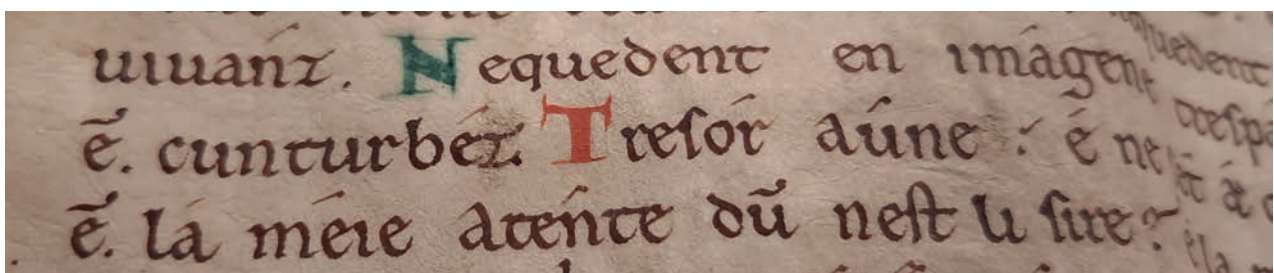 uiuanz. Nequedent en imagene
ē. cunturbez. Tresor aúne : é ne
ē. la méie atente dū nest li sire?